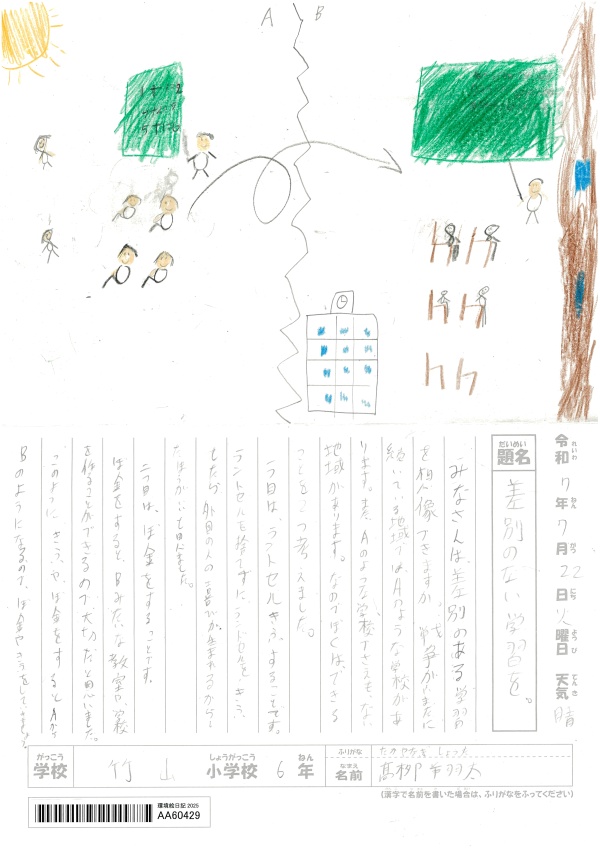 A B
令和7年7月22日火曜日 天気 晴
れいわ ねん がつ にち ようび てんき
だいめい
題名 差別のない学習を。
みなさんは、差別のある学習
を想像できますか。戦争がいまだに
続いている地域では、Aのような学校があ
ります。また、Aのような学校でさえもない
地域があります。なのでぼくはできる
ことを2つ考えました。
一つ目は、ランドセルきふをすることです。
ランドセルを捨てずに、ランドセルをきふ
したら、外国の人の喜びが生まれるからし
たほうがいいと思いました。
二つ目は、ぼ金をすることです。
ぼ金をすると、Bみたいな教室や学校
を作ることができるので大切だと思いました。
このように、きふやぼ金をするとAから
Bのようになるので、ぼ金や
がっこう
学校
竹山
しょうがっこう
小学校
6
ねん
年
ふりがな
なまえ
名前
(漢字で名前を書いた場合は、ふりがなをふってください)
環境絵日記 2025
AA60429